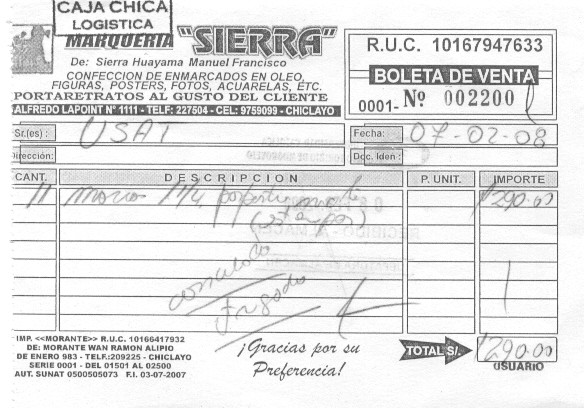 CAJA CHICA
LOGISTICA
MARQUERIA "SIERRA"
De: Sierra Huayama Manuel Francisco
CONFECCION DE ENMARCADOS EN OLEO,
FIGURAS, POSTERS, FOTOS, ACUARELAS, ETC.
PORTARETRATOS AL GUSTO DEL CLIENTE
ALFREDO LAPOINT N° 1111 - TELF: 227504 - CEL: 9759099 - CHICLAYO
R.U.C. 10167947633
BOLETA DE VENTA
0001- Nº 002200
Sr.(es) : USAT
Fecha: 07-02-08
Dirección:
Doc. Iden :
CANT. DESCRIPCION P. UNIT. IMPORTE
11 290.00
RECIBIDO - ALMACEN
cancelado
IMP. <<MORANTE>> R.U.C. 10166417932
DE: MORANTE WAN RAMON ALIPIO
DE ENERO 983 - TELF.:209225 - CHICLAYO
SERIE 0001 - DEL 01501 AL 02500
AUT. SUNAT 0500505073 F.I. 03-07-2007
¡Gracias por su
Preferencia!
TOTAL S/. 290.00
USUARIO